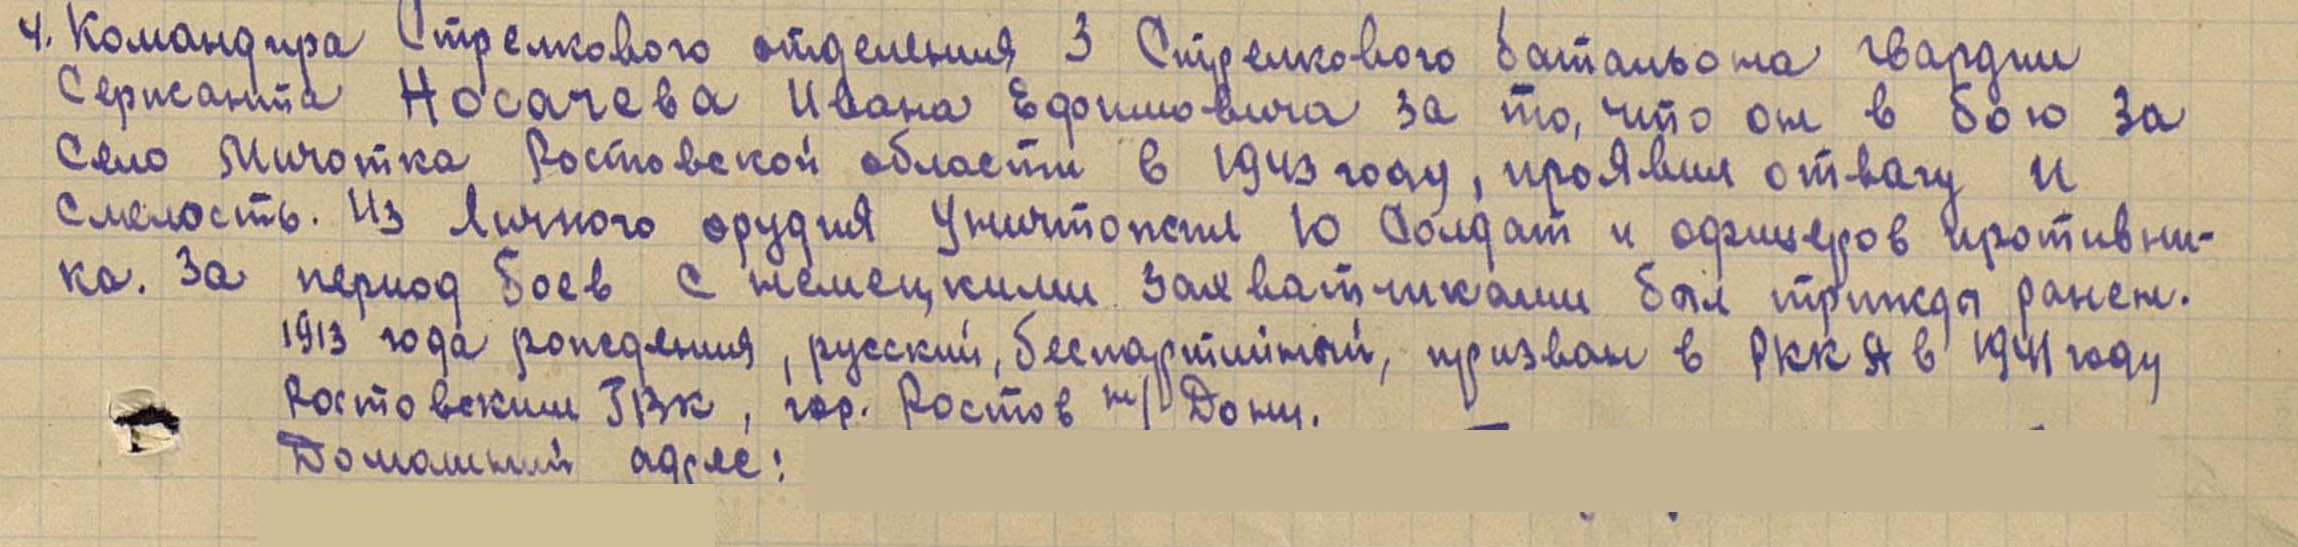 4. Командира Стрелкового отделения 3 Стрелкового батальона гвардии
Сержанта Носачева Ивана Ефимовича за то, что он в бою за
Село Мичотка Ростовской области в 1943 году, проявил отвагу и
смелость. Из личного орудия уничтожил 10 Солдат и офицеров противни-
ка. За период боев с немецкими захватчиками был трижды ранен.
1913 года рождения, русский, беспартийный, призван в РККА в 1941 году
Ростовским ГВК, гор. Ростов н/Дону.
Домашний адрес: